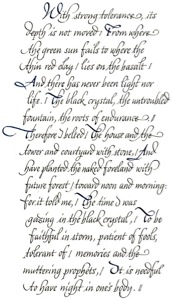 With strong tolerance, its
depth is not moved / From where
the green sun fails to where the
thin red day / lies on the basalt /
And there has never been light nor
life. / The black crystal, the untroubled
fountain, the roots of endurance. /
Therefore I belied / The house and the
tower and courtyard with stone, / And
have planted the naked foreland with
future forest / toward noon and morning:
for it told me, / The time I was
gazing in the black crystal, / To be
faithful in storm, patient of fools,
tolerant of / memories and the
muttering prophets, / It is needful
to have night in one's body. //